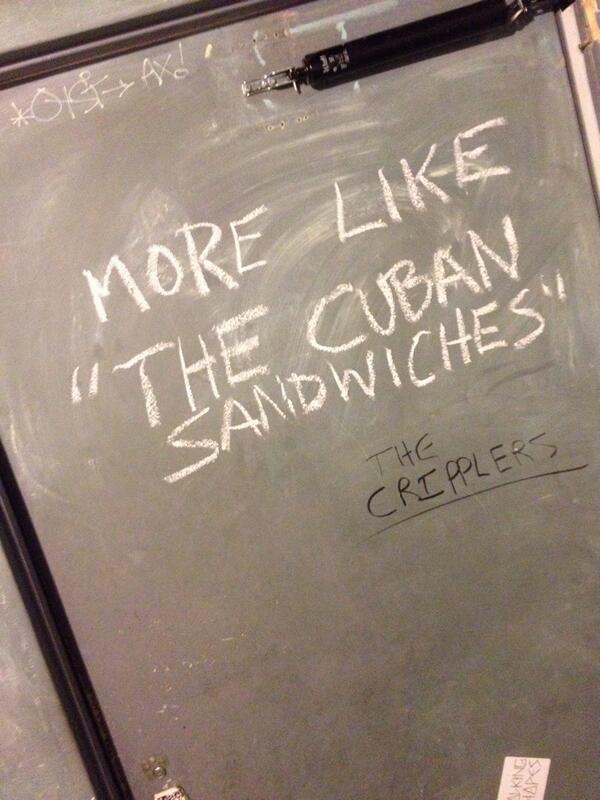 MORE LIKE
"THE CUBAN
SANDWICHES"
THE
CRIPPLERS